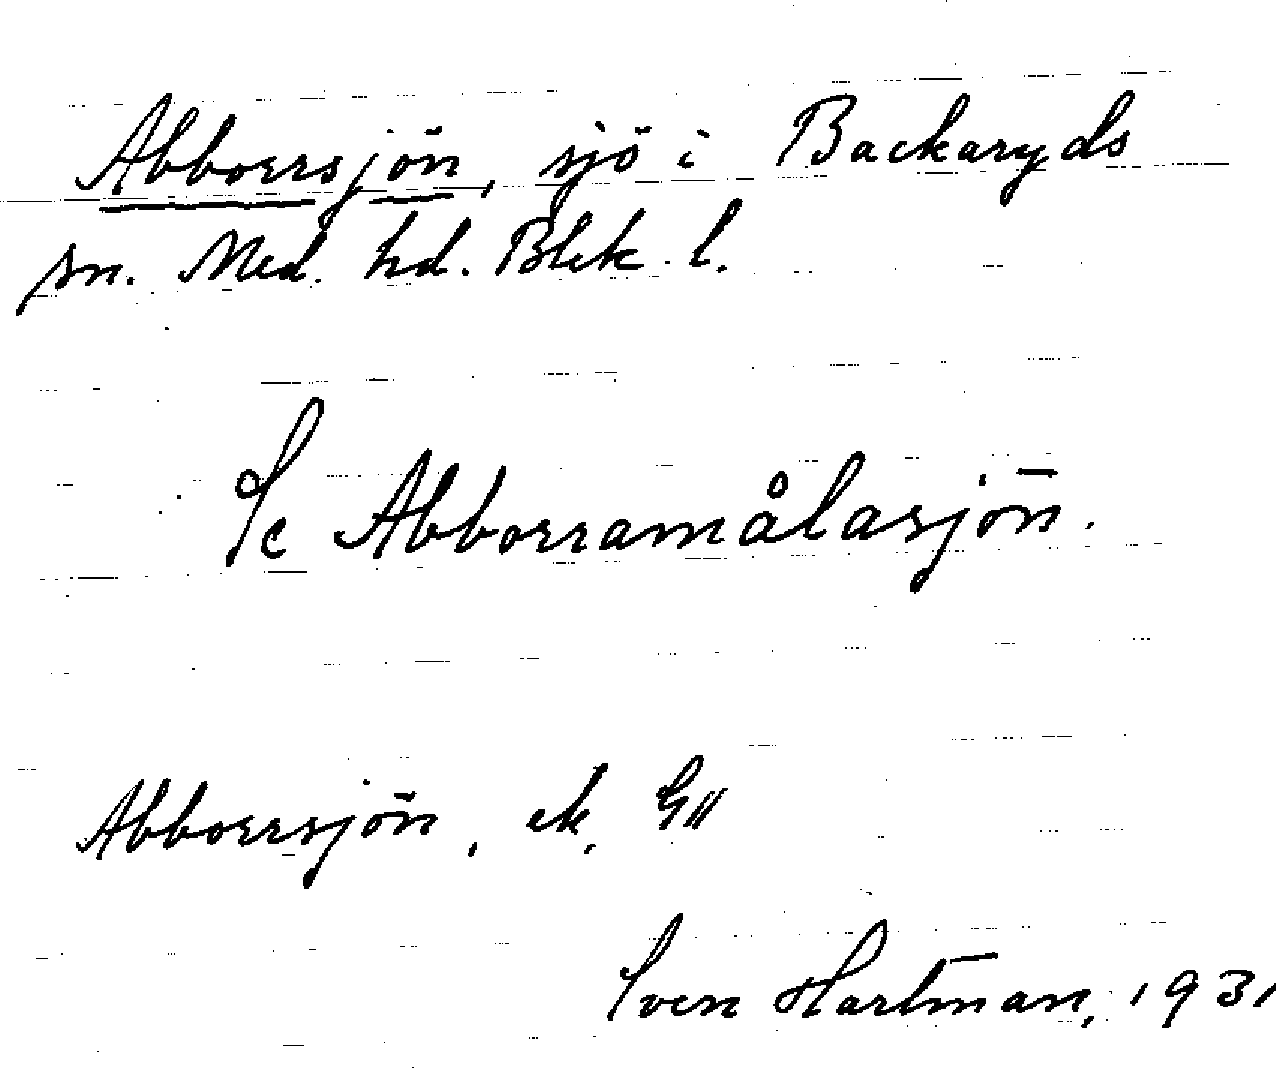 Abborrsjön, sjö i Backaryds
sn. Med. hd. Blek. l.
Se Abborramålasjön.
Abborrsjön, ek.
Sven Hartman, 1931